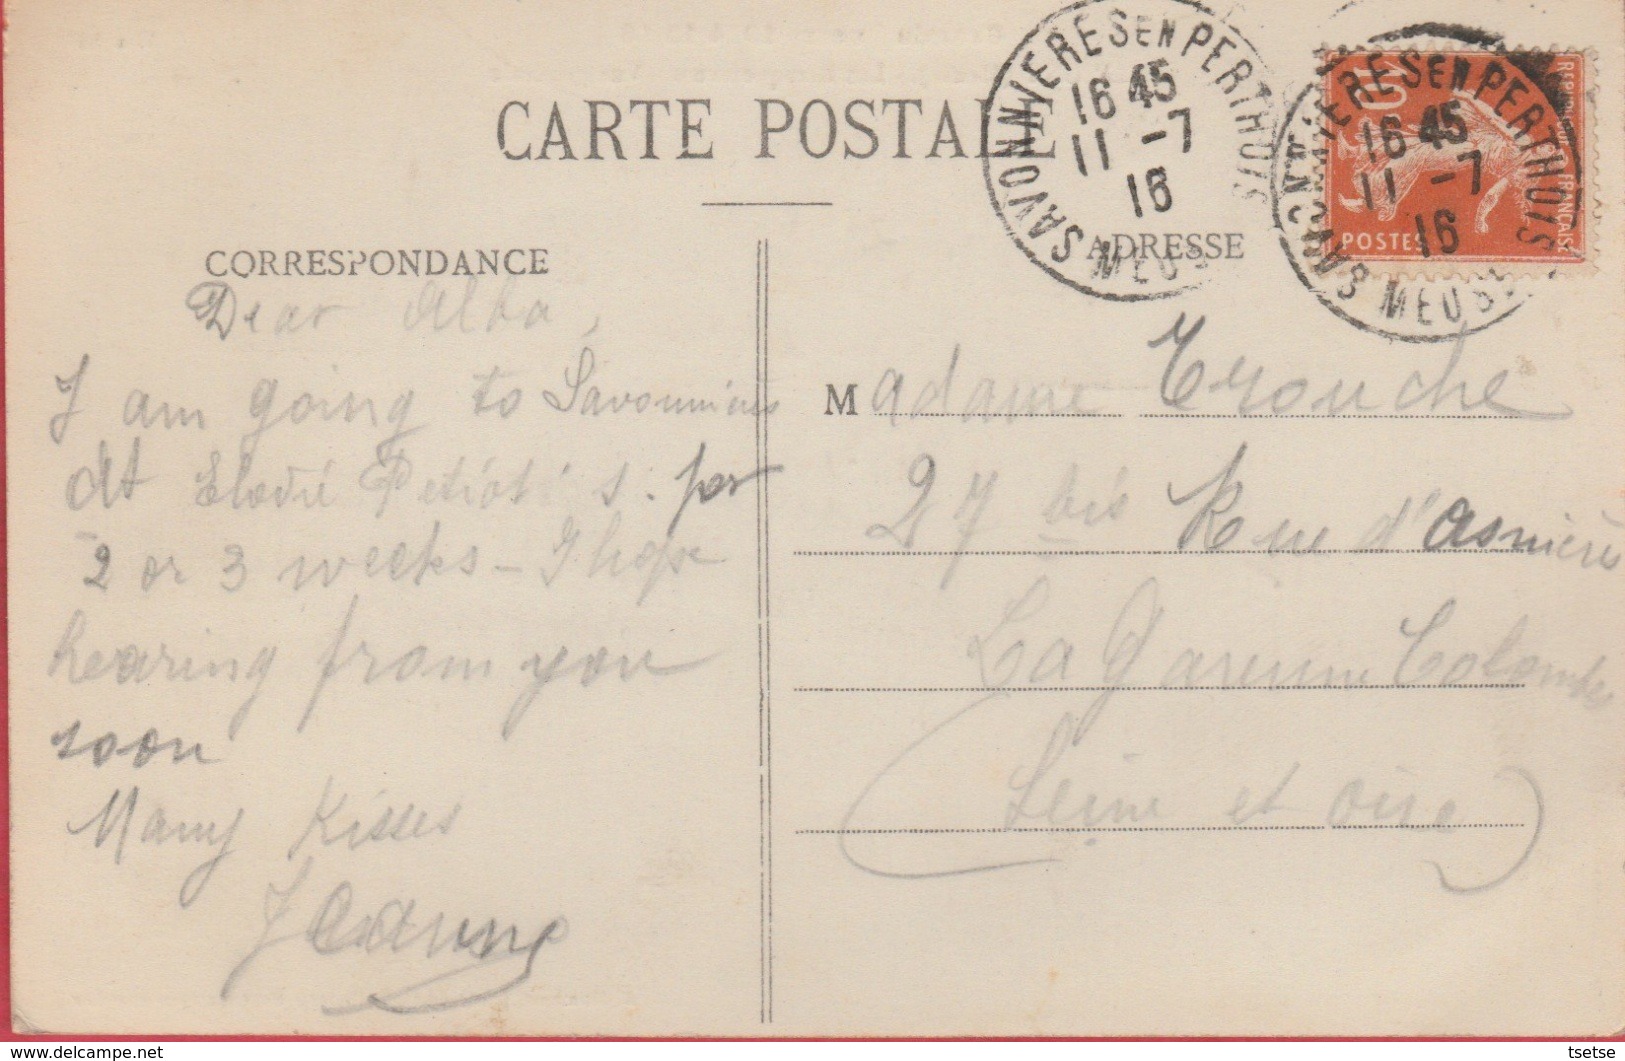 CARTE POSTALE
SAVONNIERES EN PERTHOIS
16 45
11 -7
16
MEUSE
SAVONNIERES EN PERTHOIS
16 45
11 -7
16
MEUSE
10
POSTES
CORRESPONDANCE
ADRESSE
Dear Alba,
I am going to Savonnières
At Elodie Petiot's. for
2 or 3 weeks - I hope
hearing from you
soon
Many Kisses
Jeanne
Madame Trouche
27 bis Rue d'Asnières
La Garenne Colombes
Seine et Oise
tsetse
www.delcampe.net